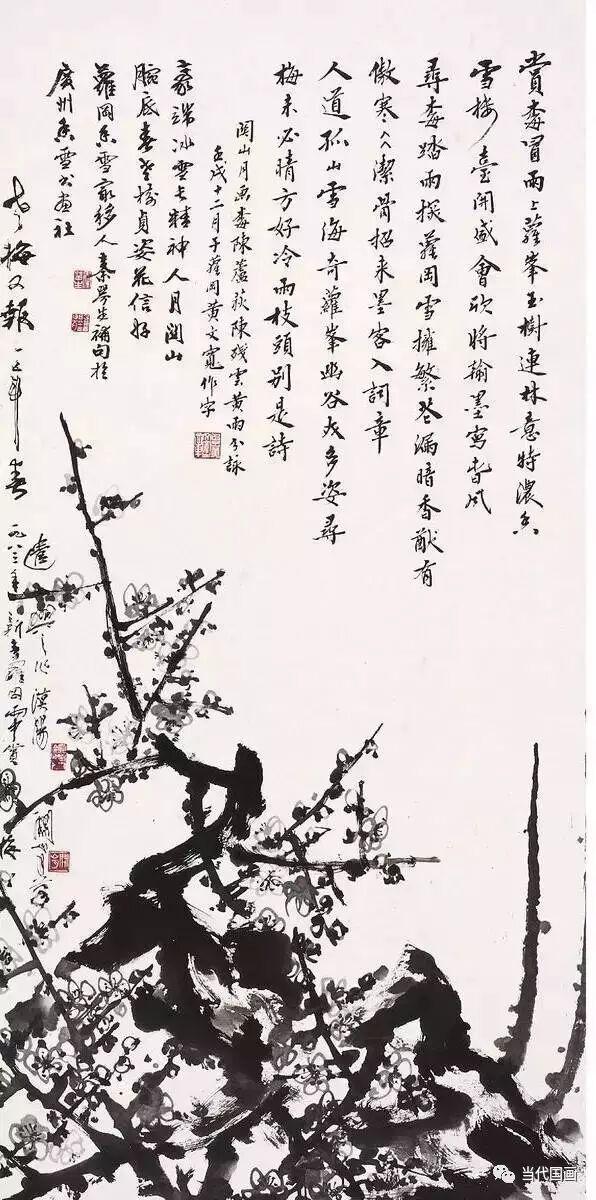 賞梅冒雨上蘿峯玉樹連林意特濃
雪樓臺開盛會欣將翰墨寫春風
尋梅踏雨探蘿岡雪擁繁花漏暗香猷有
傲寒人潔骨招來墨客入詞章
人道孤山雪海奇蘿峯幽谷尤多姿尋
梅未必晴方好冷雨枝頭别是詩
関山月画梅陳蘆荻陳残雲黄雨分詠
壬戌十二月于蘿岡黄文寬作字
冰雪長精神人月関山
腕底春貞姿花信好
蘿岡香雪人秦咢生補句於
廣州香雪書畫社
梅又報春
漢陽
一九八三年新春蘿岡賞梅
関山月
当代国画